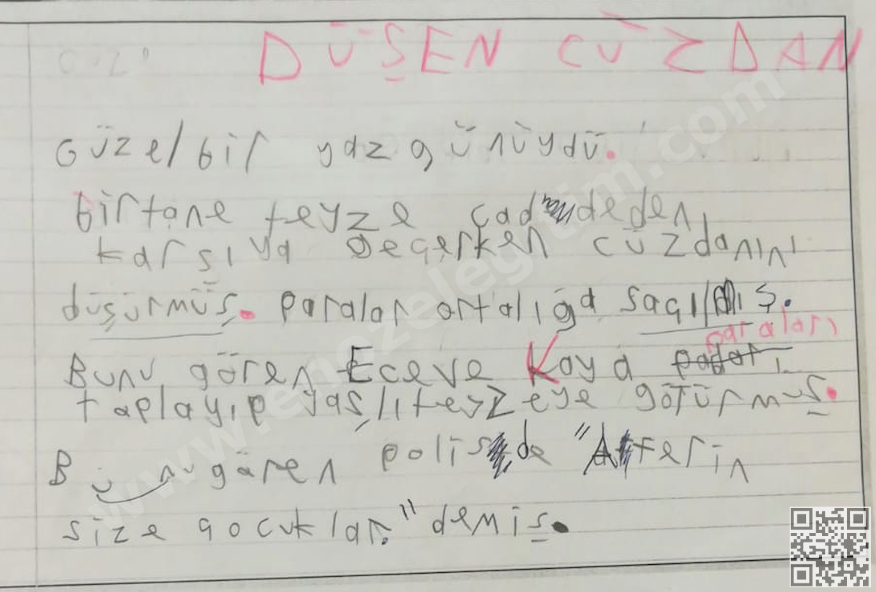 DÜŞEN CÜZDAN
Güzel bir yaz günüydü.
birtane teyze caddeden
karşıya geçerken cüzdanını
düşürmüş. paralar ortalığa saçılmış.
paraları
Bunu gören Ece ve Kaya
taplayıp yaşlı teyzeye götürmüş.
Bunu gären polis de "Aferin
size çocuklar." demiş.
www.enozelegitim.com